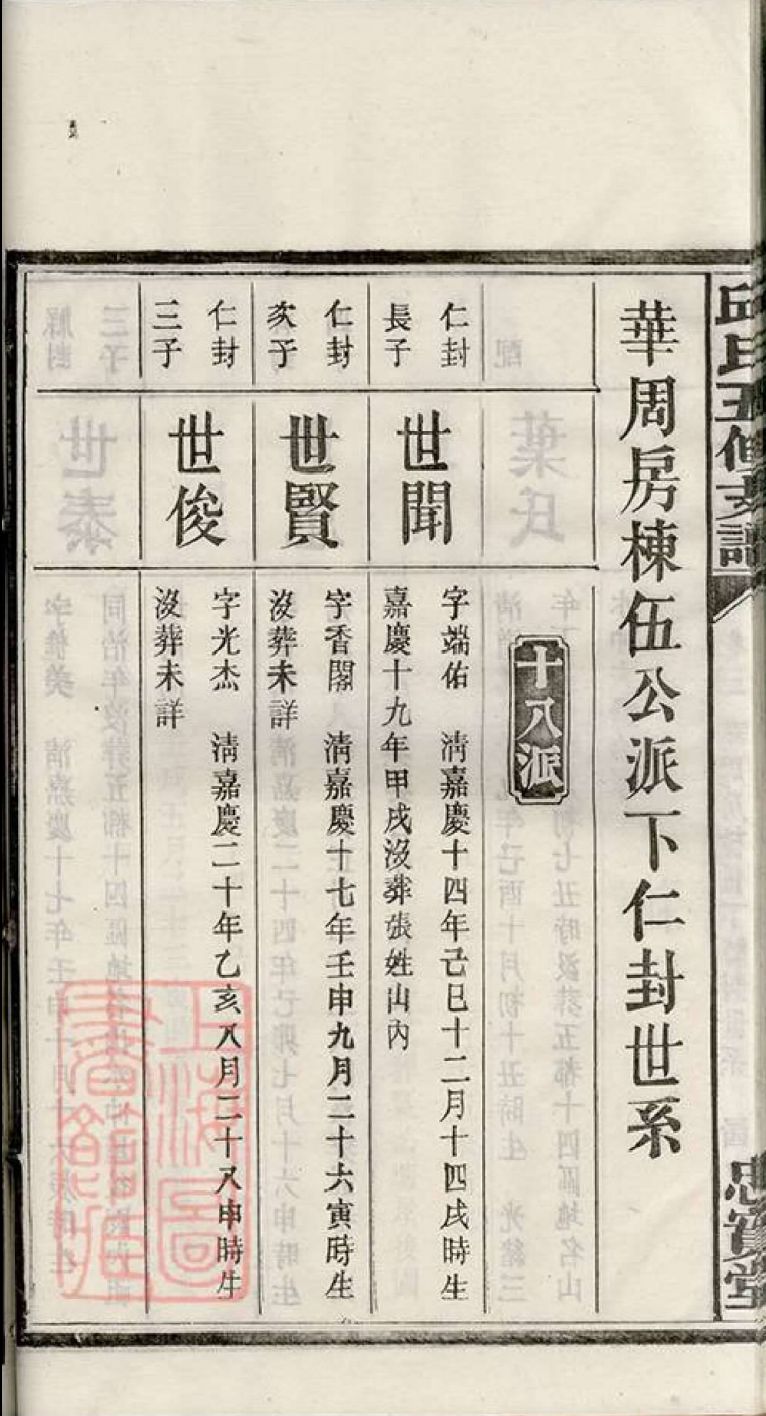 邱氏五修支譜
忠實堂
華周房棟伍公派下仁封世系
十八派
仁封
長子
世聞
字端佑 清嘉慶十四年己巳十二月十四戌時生
嘉慶十九年甲戌沒葬張姓山內
仁封
次子
世賢
字香閣 清嘉慶十七年壬申九月二十六寅時生
沒葬未詳
仁封
三子
世俊
字光杰 清嘉慶二十年乙亥八月二十八申時生
沒葬未詳
上海圖書館藏